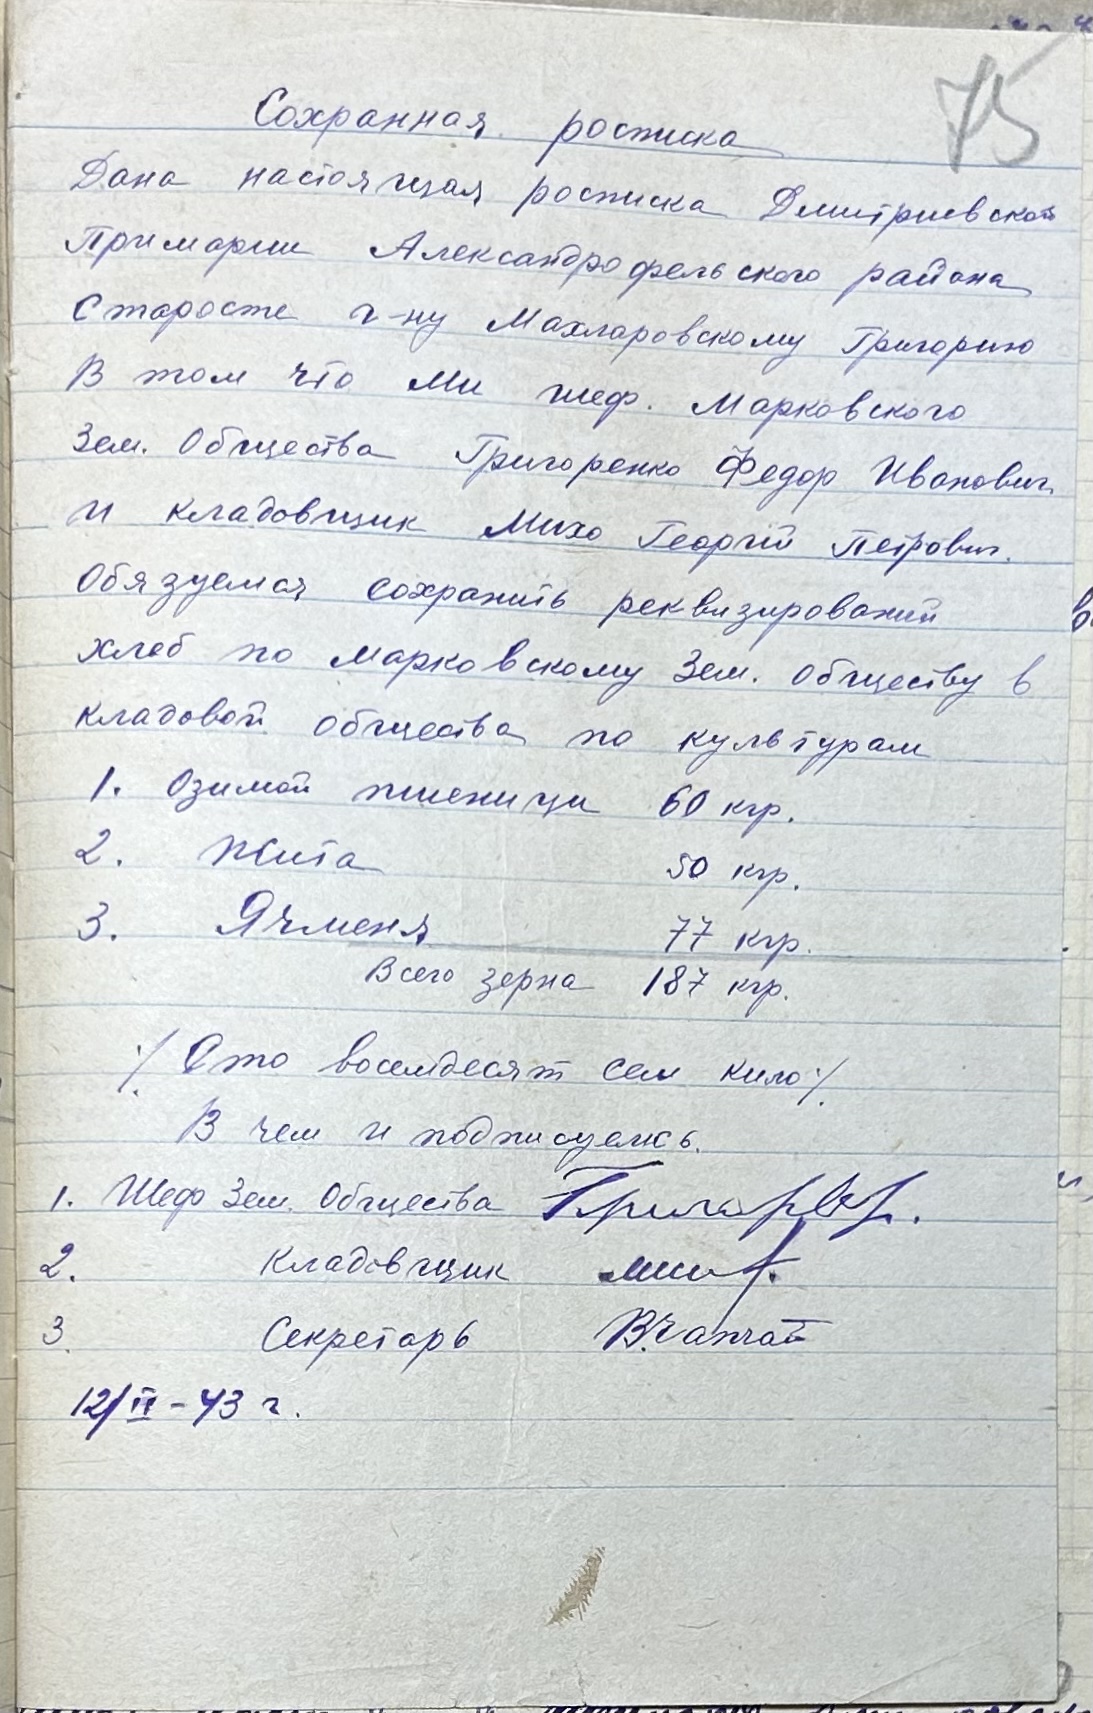 75
Сохранная росписка
Дана настоящая росписка Дмитриевской
Примарии Александрофельского района
Старосте г-ну Махларовскому Григорию
В том что Ми шеф. Марковского
Зем. Общества Григоренко Федор Иванович
и кладовщик Михо Георгий Петрович.
Обязуемся сохранить реквизирований
хлеб по Марковскому Зем. обществу в
кладовой общества по культурам
1. Озимой пшеници 60 кгр.
2. Жита 50 кгр.
3. Ячменя 77 кгр.
Всего зерна 187 кгр.
·/. Сто восемдесят сем кило ·/.
В чем и подписуемсь.
1. Шеф Зем. Общества
2. Кладовщик
3. Секретарь
12/II - 43 г.